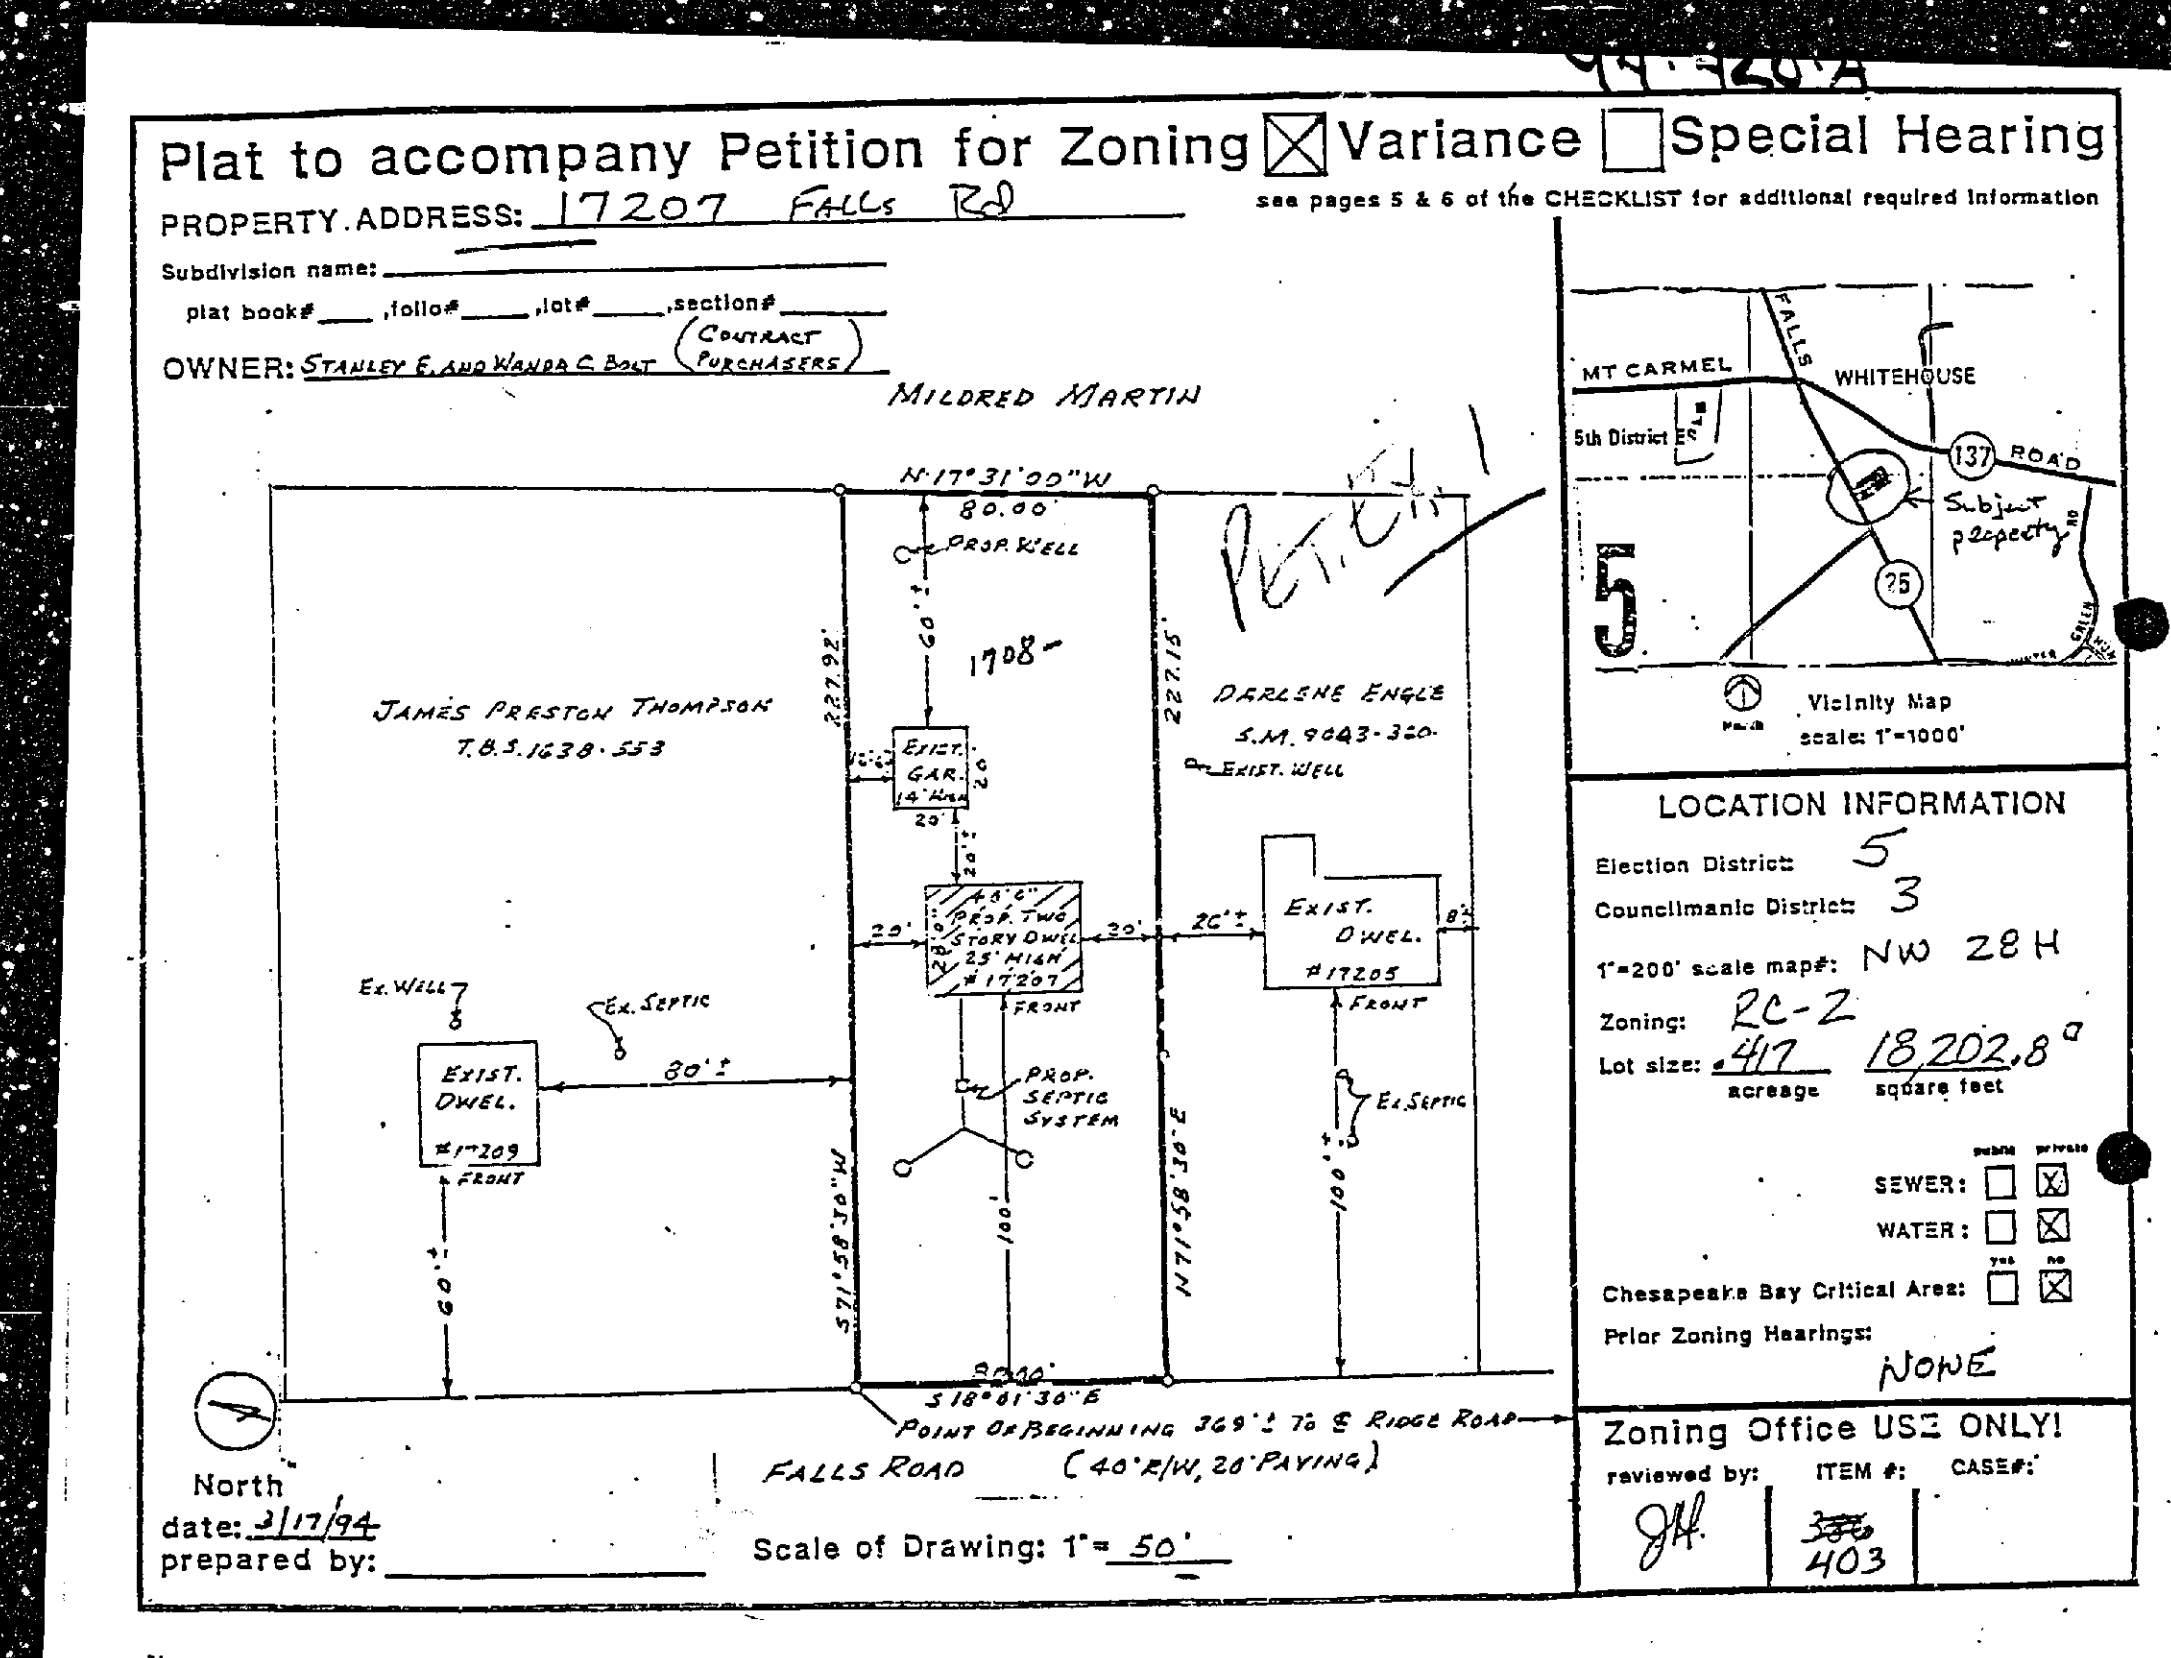 Plat to accompany Petition for Zoning Variance Special Hearing
PROPERTY ADDRESS: 17207 FALLS Rd
see pages 5 & 6 of the CHECKLIST for additional required information
Subdivision name:
plat book# ,folio# ,lot# ,section#
OWNER: STANLEY E. AND WANDA C. BOLT (CONTRACT PURCHASERS)
MILDRED MARTIN
N 17° 31' 00" W
80.00'
PROP. WELL
60'±
1708-
PET. EX. 1
227.92'
227.15'
JAMES PRESTON THOMPSON
T.B.S. 1638-553
DARLENE ENGLE
EXIST. WELL
EXIST.
GAR.
14' HIGH
20
20'
20'±
40'6"
PROP. TWO
STORY DWEL
25' HIGH
# 17207
28'0"
FRONT
20'
20'
26'±
EXIST.
DWEL.
# 17205
FRONT
8'±
EX. WELL
EX. SEPTIC
EXIST.
DWEL.
# 17209
FRONT
80'±
60'±
PROP.
SEPTIC
SYSTEM
EX. SEPTIC
100'
100'±
S 71° 58' 30" W
N 71° 58' 30" E
80.00'
S 18° 01' 30" E
POINT OF BEGINNING 369'± TO ℄ RIDGE ROAD
FALLS ROAD (40' R/W, 20' PAVING)
North
date: 3/17/94
prepared by:
Scale of Drawing: 1"= 50'
FALLS
MT CARMEL
WHITEHOUSE
5th District ES
137
ROAD
Subject
property
RD
5
25
North
Vicinity Map
scale: 1"=1000'
LOCATION INFORMATION
Election District: 5
Councilmanic District: 3
1"=200' scale map#: NW 28H
Zoning: RC-2
Lot size: .417 18,202.8
acreage square feet
public private
SEWER:
WATER:
yes no
Chesapeake Bay Critical Area:
Prior Zoning Hearings:
NONE
Zoning Office USE ONLY!
reviewed by: ITEM #: CASE#:
JH.
403